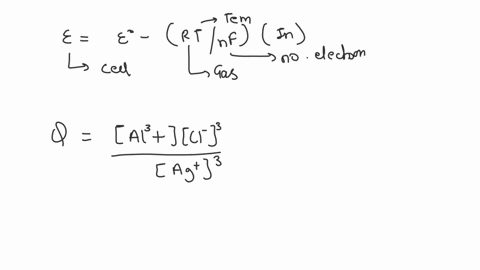 Tem
ε = ε° - (RT/nF) (In)
cell
Gas
no. electron
Q = [Al³+][Cl⁻]³
[Ag⁺]³